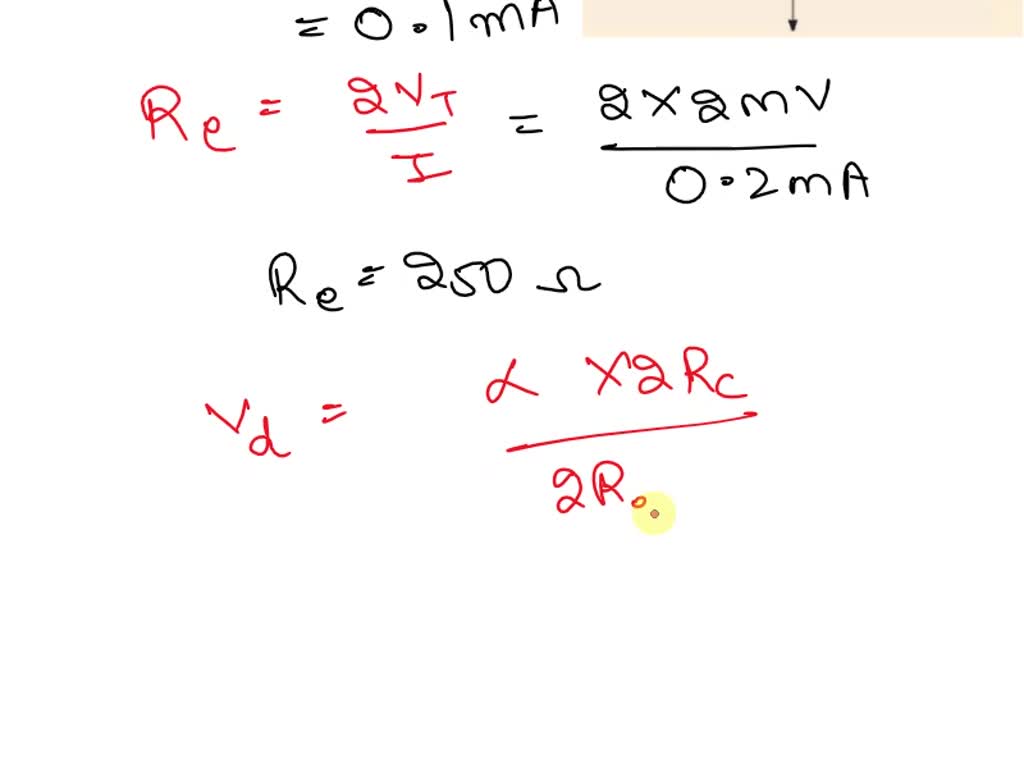 = 0.1mA
Re = 2VT / I = 2×2mV / 0.2mA
Re = 250 Ω
Vd = α ×2Rc / 2R.